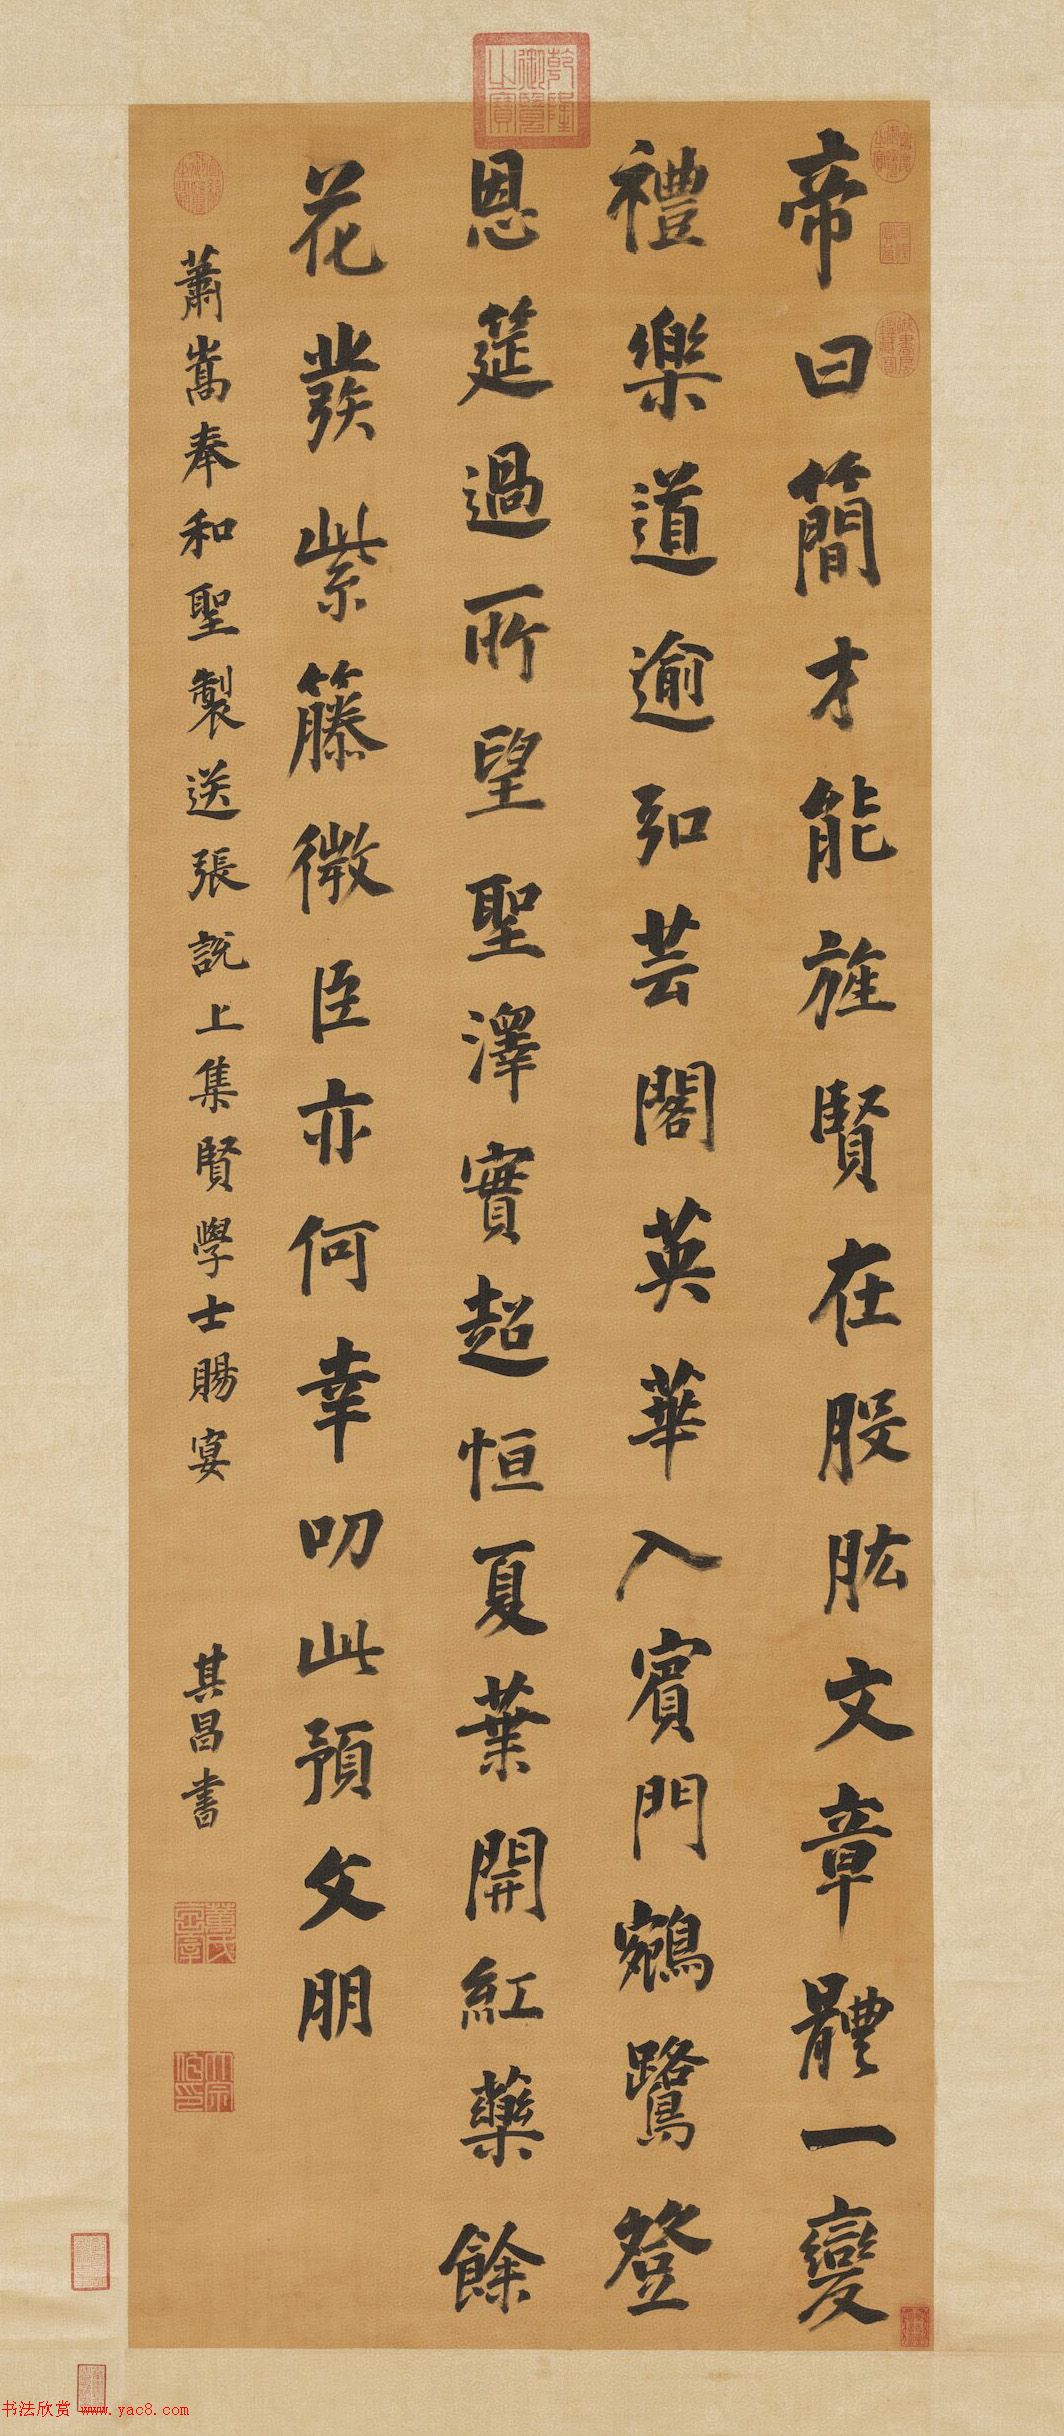 帝曰簡才能旌賢在股肱文章體一變
禮樂道逾弘芸閣英華入賓門鵷鷺登
恩筵過所望聖澤實超恒夏葉開紅藥餘
花發紫籐微臣亦何幸叨此預文朋
蕭嵩奉和聖製送張說上集賢學士賜宴
其昌書
乾隆御覽之寶
書法欣赏 www.yac8.com